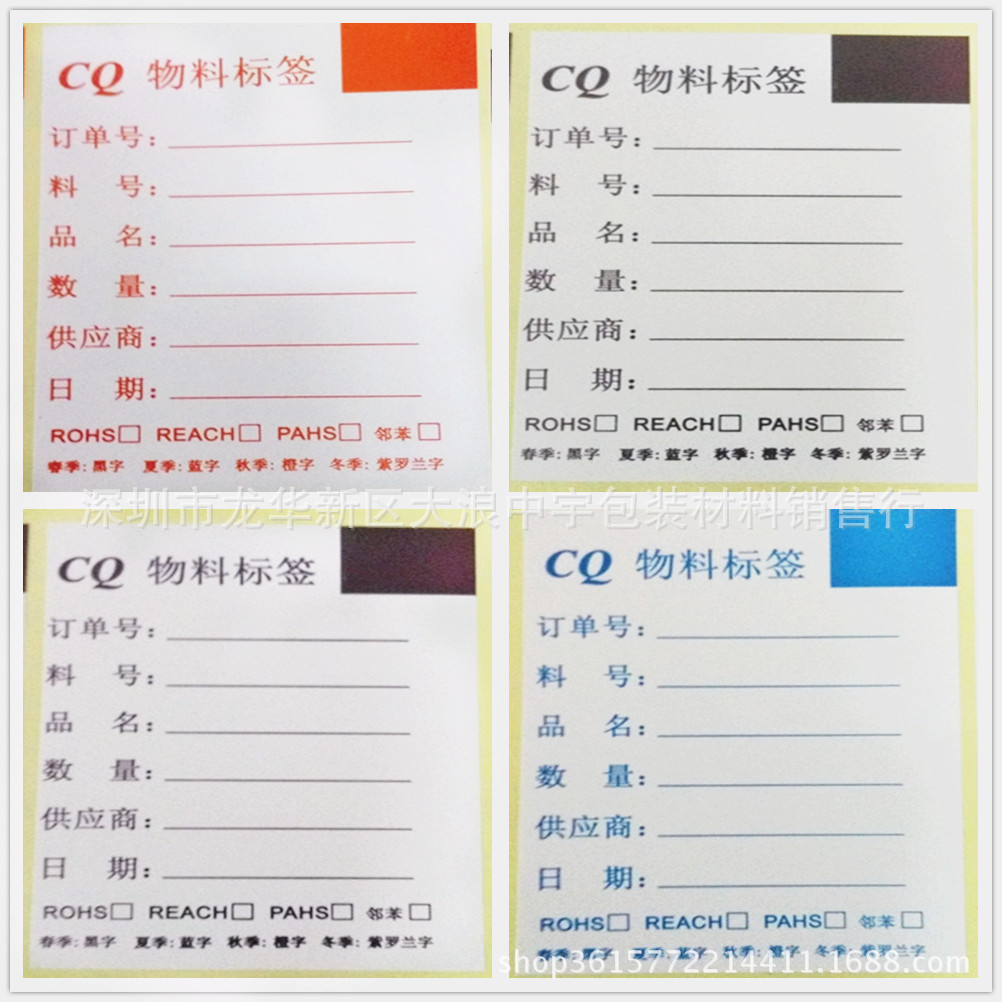 CQ 物料标签
订单号：
料 号：
品 名：
数 量：
供应商：
日 期：
ROHS□ REACH□ PAHS□ 邻苯□
春季:黑字 夏季:蓝字 秋季:橙字 冬季:紫罗兰字
CQ 物料标签
订单号：
料 号：
品 名：
数 量：
供应商：
日 期：
ROHS□ REACH□ PAHS□ 邻苯□
春季:黑字 夏季:蓝字 秋季:橙字 冬季:紫罗兰字
深圳市龙华新区大浪中宇包装材料销售行
CQ 物料标签
订单号：
料 号：
品 名：
数 量：
供应商：
日 期：
ROHS□ REACH□ PAHS□ 邻苯□
春季:黑字 夏季:蓝字 秋季:橙字 冬季:紫罗兰字
CQ 物料标签
订单号：
料 号：
品 名：
数 量：
供应商：
日 期：
ROHS□ REACH□ PAHS□ 邻苯□
春季:黑字 夏季:蓝字 秋季:橙字 冬季:紫罗兰字
shop3615772214411.1688.com